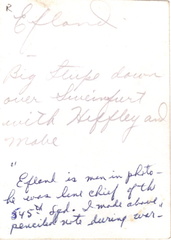 R
Efland -
Big Stupe down
over Sweinfurt
with Heffley and
Mabe
"
Efland is man in photo-
he was line chief of the
545th Sqd. I made above
penciled note during war-